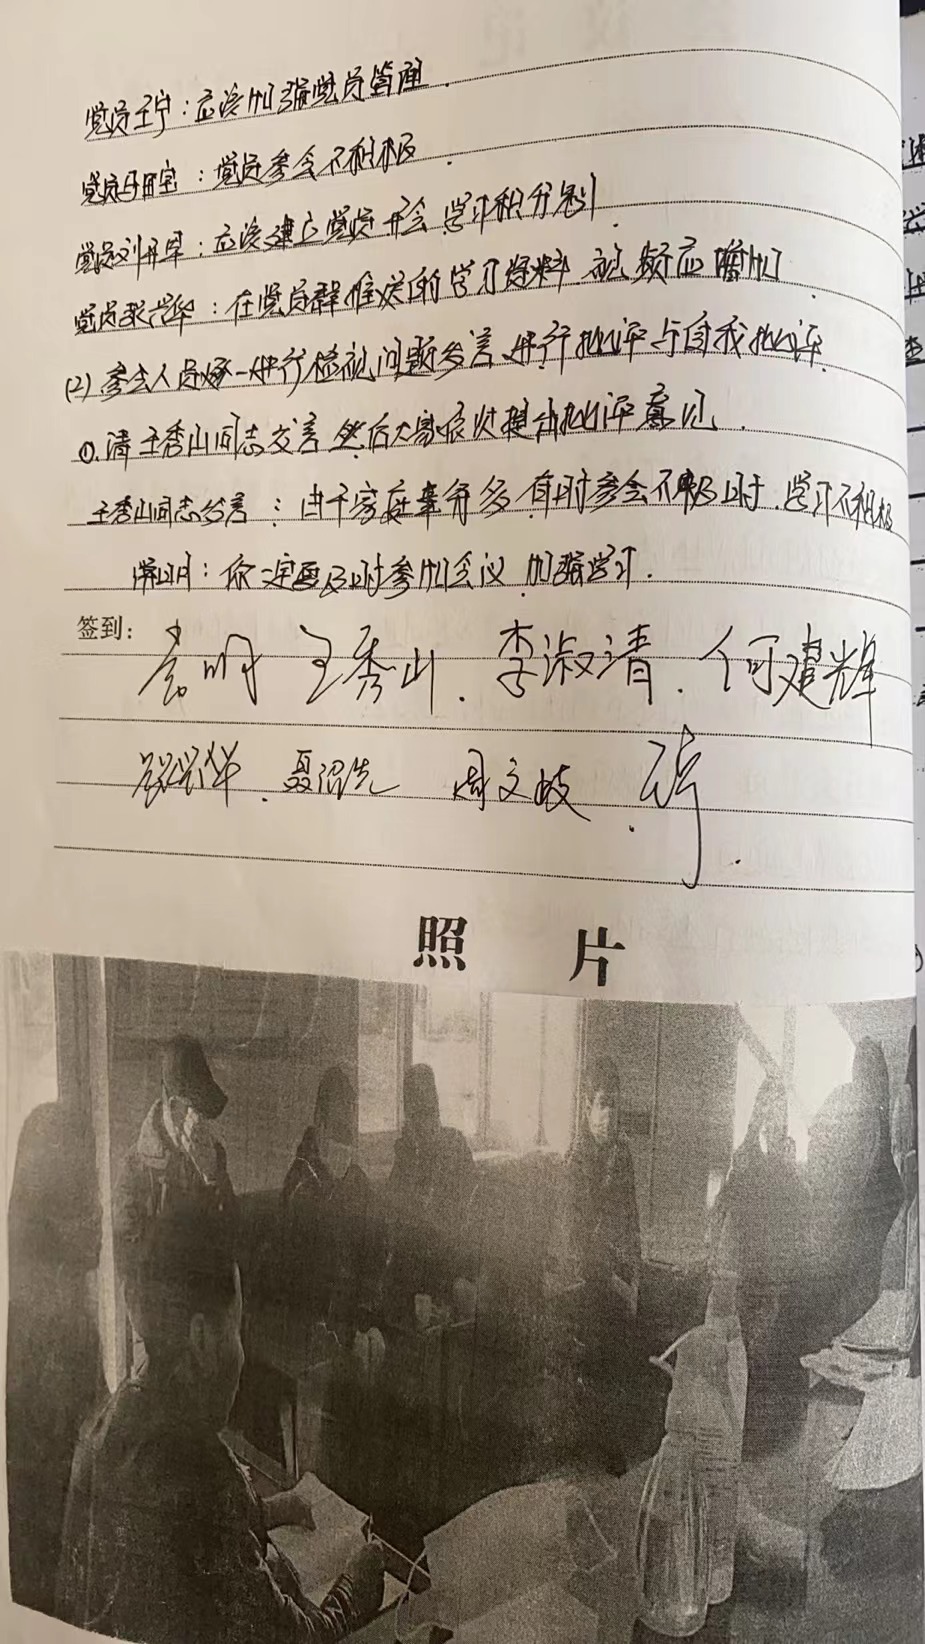 党员王宁：应该加强党员管理．
党员马田宝：党员参会不积极．
党员刘开军：应该建立党员开会学习积分制．
党员张兴华：在党员群推送的学习资料 视频应增加．
(2)参会人员逐一进行检视问题发言，进行批评与自我批评．
①.请王秀山同志发言 然后大家依次提出批评意见．
王秀山同志发言：由于家庭事务多，有时参会不及时．学习不积极
你一定要及时参加会议 加强学习．
签到：
明 王秀山．李淑清．何建辉
张兴华．聂沼先 周文岐
照 片